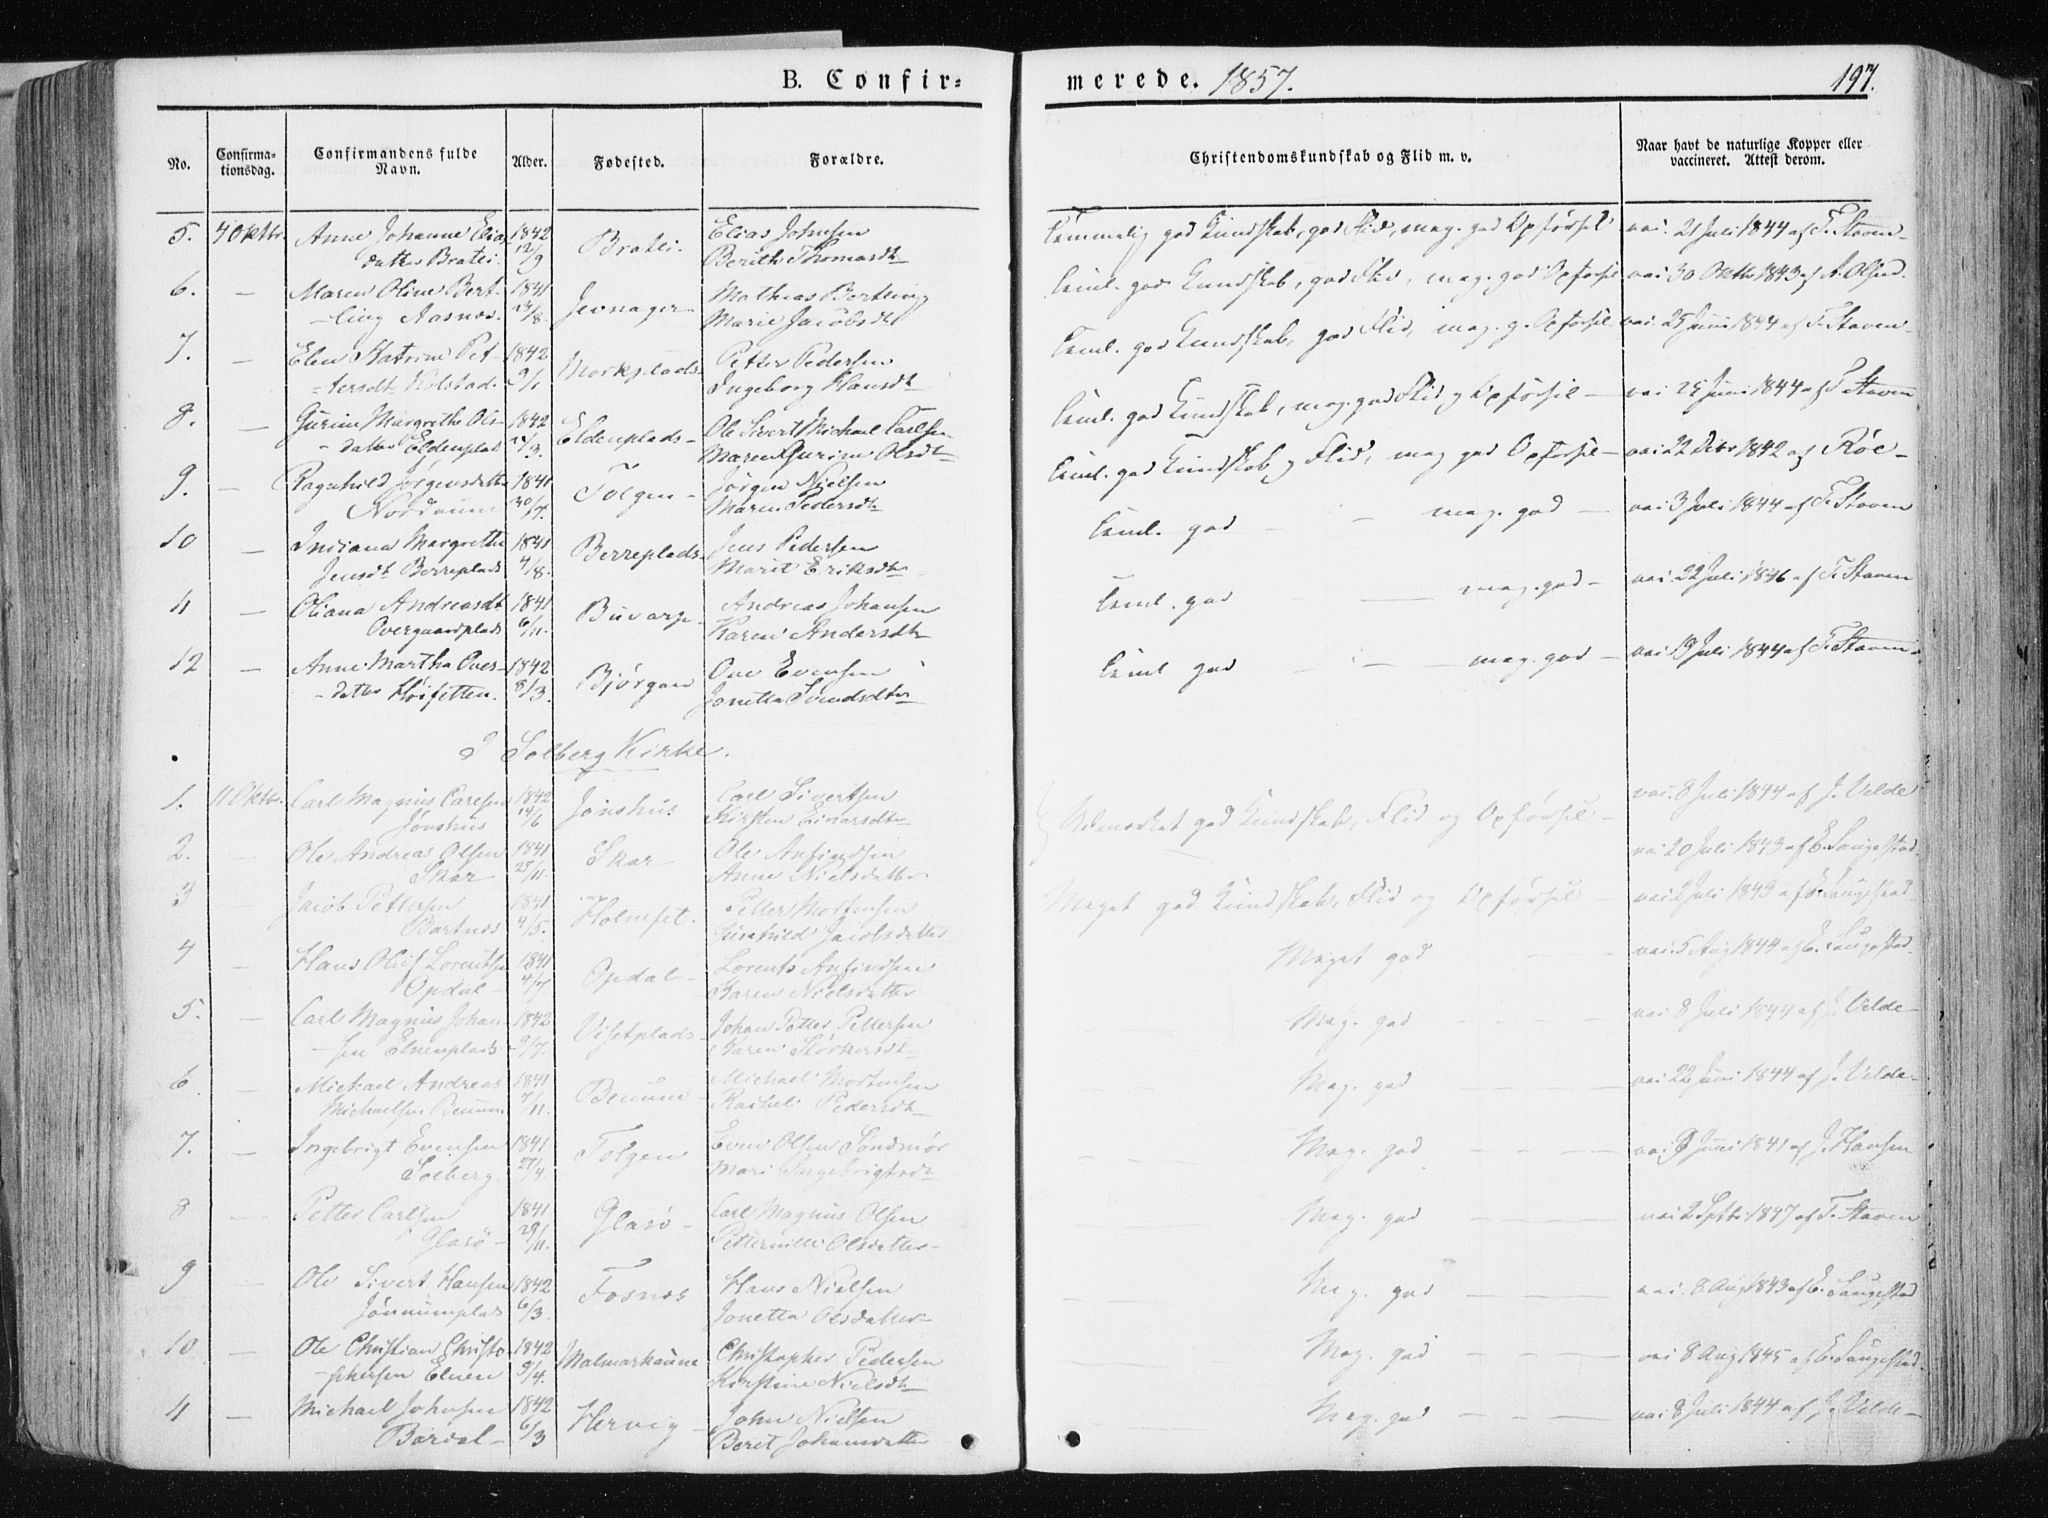 B. Confir=
merede. 1857.
197.
No.
Confirma-
tionsdag.
Confirmandens fulde
Navn.
Alder.
Fødested.
Forældre.
Christendomskundskab og Flid m. v.
Naar havt de naturlige Kopper eller
vaccineret. Attest derom.
5. 4 Oktbr. Anne Johanne Elias 1842 Elias Johnsen
datter Bratli. 12/9 Bratli. Berith Thomasdtr
Temmelig god Kundskab, god Flid, mag. god Opførsel vac. 21 Juli 1844 af F. Staven
6. — Maren Oline Bert- 1841 Mathias Bertling
-ling Aasnes. 24/8. Jevnager Marie Jacobsdtr
teml. god Kundskab, god Flid, mag. god Opførsel vac 30 Oktbr 1843 af A. Olsen.
7. — Elen Katrine Pet- 1842 Petter Pedersen
-tersdt Kolstad. 9/1 Ingeborg Hansdtr
teml. god Kundskab, god Flid, mag. g. Opførsel vac. 25 Juni 1844 af F. Staven
8. — Gurine Margrethe Ols- 1842 Eldenplads Ole Sivert Michael Carlsen
-datter Eldenplads /3. Maren Gurine Olsdtr
teml. god Kundskab, mag. god Flid g Opførsel — vac 25 Juni 1844 af F. Staven
9. — Ragnhild Jørgensdatter 1841 Folgen Jørgen Nielsen
30/7. Maren Pedersdtr
teml. god Kundskab g Flid, mag god Opførsel — vac 22 Debr 1842 af Röe
10 — Indiana Margrethe 1841 Berreplads Jens Pedersen
Jensdt Berreplads 4/8. Marit Eriksdtr
teml. god — — mag. god — vac 3 Juli 1844 af F. Staven
11 — Oliana Andreasdt 1841 Buvarp Andreas Johansen
Overgaardplads 6/11. Karen Andersdtr
teml. god — mag. god — vac. 22 Juli 1846 af F. Staven
12 — Anne Martha Oves- 1842 Bjørgan Ove Evensen
-datter Høisetten. 8/3. Jonetta Svendsdtr
teml god — — mag. god — vac 19 Juli 1844 af F. Staven
I Solberg Kirke.
1. 11 Oktbr. Carl Magnus Carlsen 1842 Jønshus Carl Sivertsen
Jønshus 14/6 Kirsten Einarsdtr
Udmærket god Kundskab, Flid og Opførsel — vac. 8 Juli 1844 af J. Velde
2. — Ole Andreas Olsen 1841 Skar Ole Anfindsen
Skar 28/11. Anne Nielsdatter
vac 20 Juli 1843 af E. Langestad.
3 — Jacob Pettersen 1841 Holmset. Petter Mortensen
Bartnes 4/5. Gunhild Jacobsdatter
Meget god Kundskab, Flid og Opførsel — vac 2 Juli 1843 af E. Langestad.
4 — Hans Oluf Lorentsen 1841 Opdal Lorents Anfindsen
Opdal — 4/7 Karen Nielsdatter
Meget god — — vac. 5 Aug 1844 af E. Langestad.
5. — Carl Magnus Johan- 1842 Visetplads Johan Petter Pettersen
-sen Elnenplads 9/7. Karen Størkersdt
Mag. god — — — vac 8 Juli 1844 af J. Velde
6. — Michael Andreas 1841 Benum Michael Mortensen
Michaelsen Benum 7/11. Rachel Pedersdt
Mag. god — — — vac 22 Juni 1844 af J. Velde
7. — Ingebrigt Evensen 1841 Folgen Even Olsen Søndmør
Solberg 27/4. Mari Ingebrigtsdt
Mag. god — — — vac 9 Juni 1841 af J. Hansen
8 — Petter Carlsen 1841 Glasø Carl Magnus Olsen
Glasø 29/11. Petternille Olsdatter
Mag. god — — — vac 2 Septb. 1847 af F. Staven
9 — Ole Sivert Hansen 1842 Fosnes Hans Nielsen
Jønnumplads 6/3. Jonetta Olsdatter
Mag. god — — — vac. 8 Aug 1843 af E. Langestad
10 — Ole Christian Christo- 1842 Malmarkaune Christopher Pedersen
-phersen Elnen 9/4. Kirstine Nielsdt
Mag. god — — — vac 8 Aug 1845 af E. Langestad.
11 — Michael Johnsen 1842 Hervig John Nielsen
Bardal 6/3 Berit Johansdatter
Mag. god — — — vac 8 Juli 1844 af J. Velde